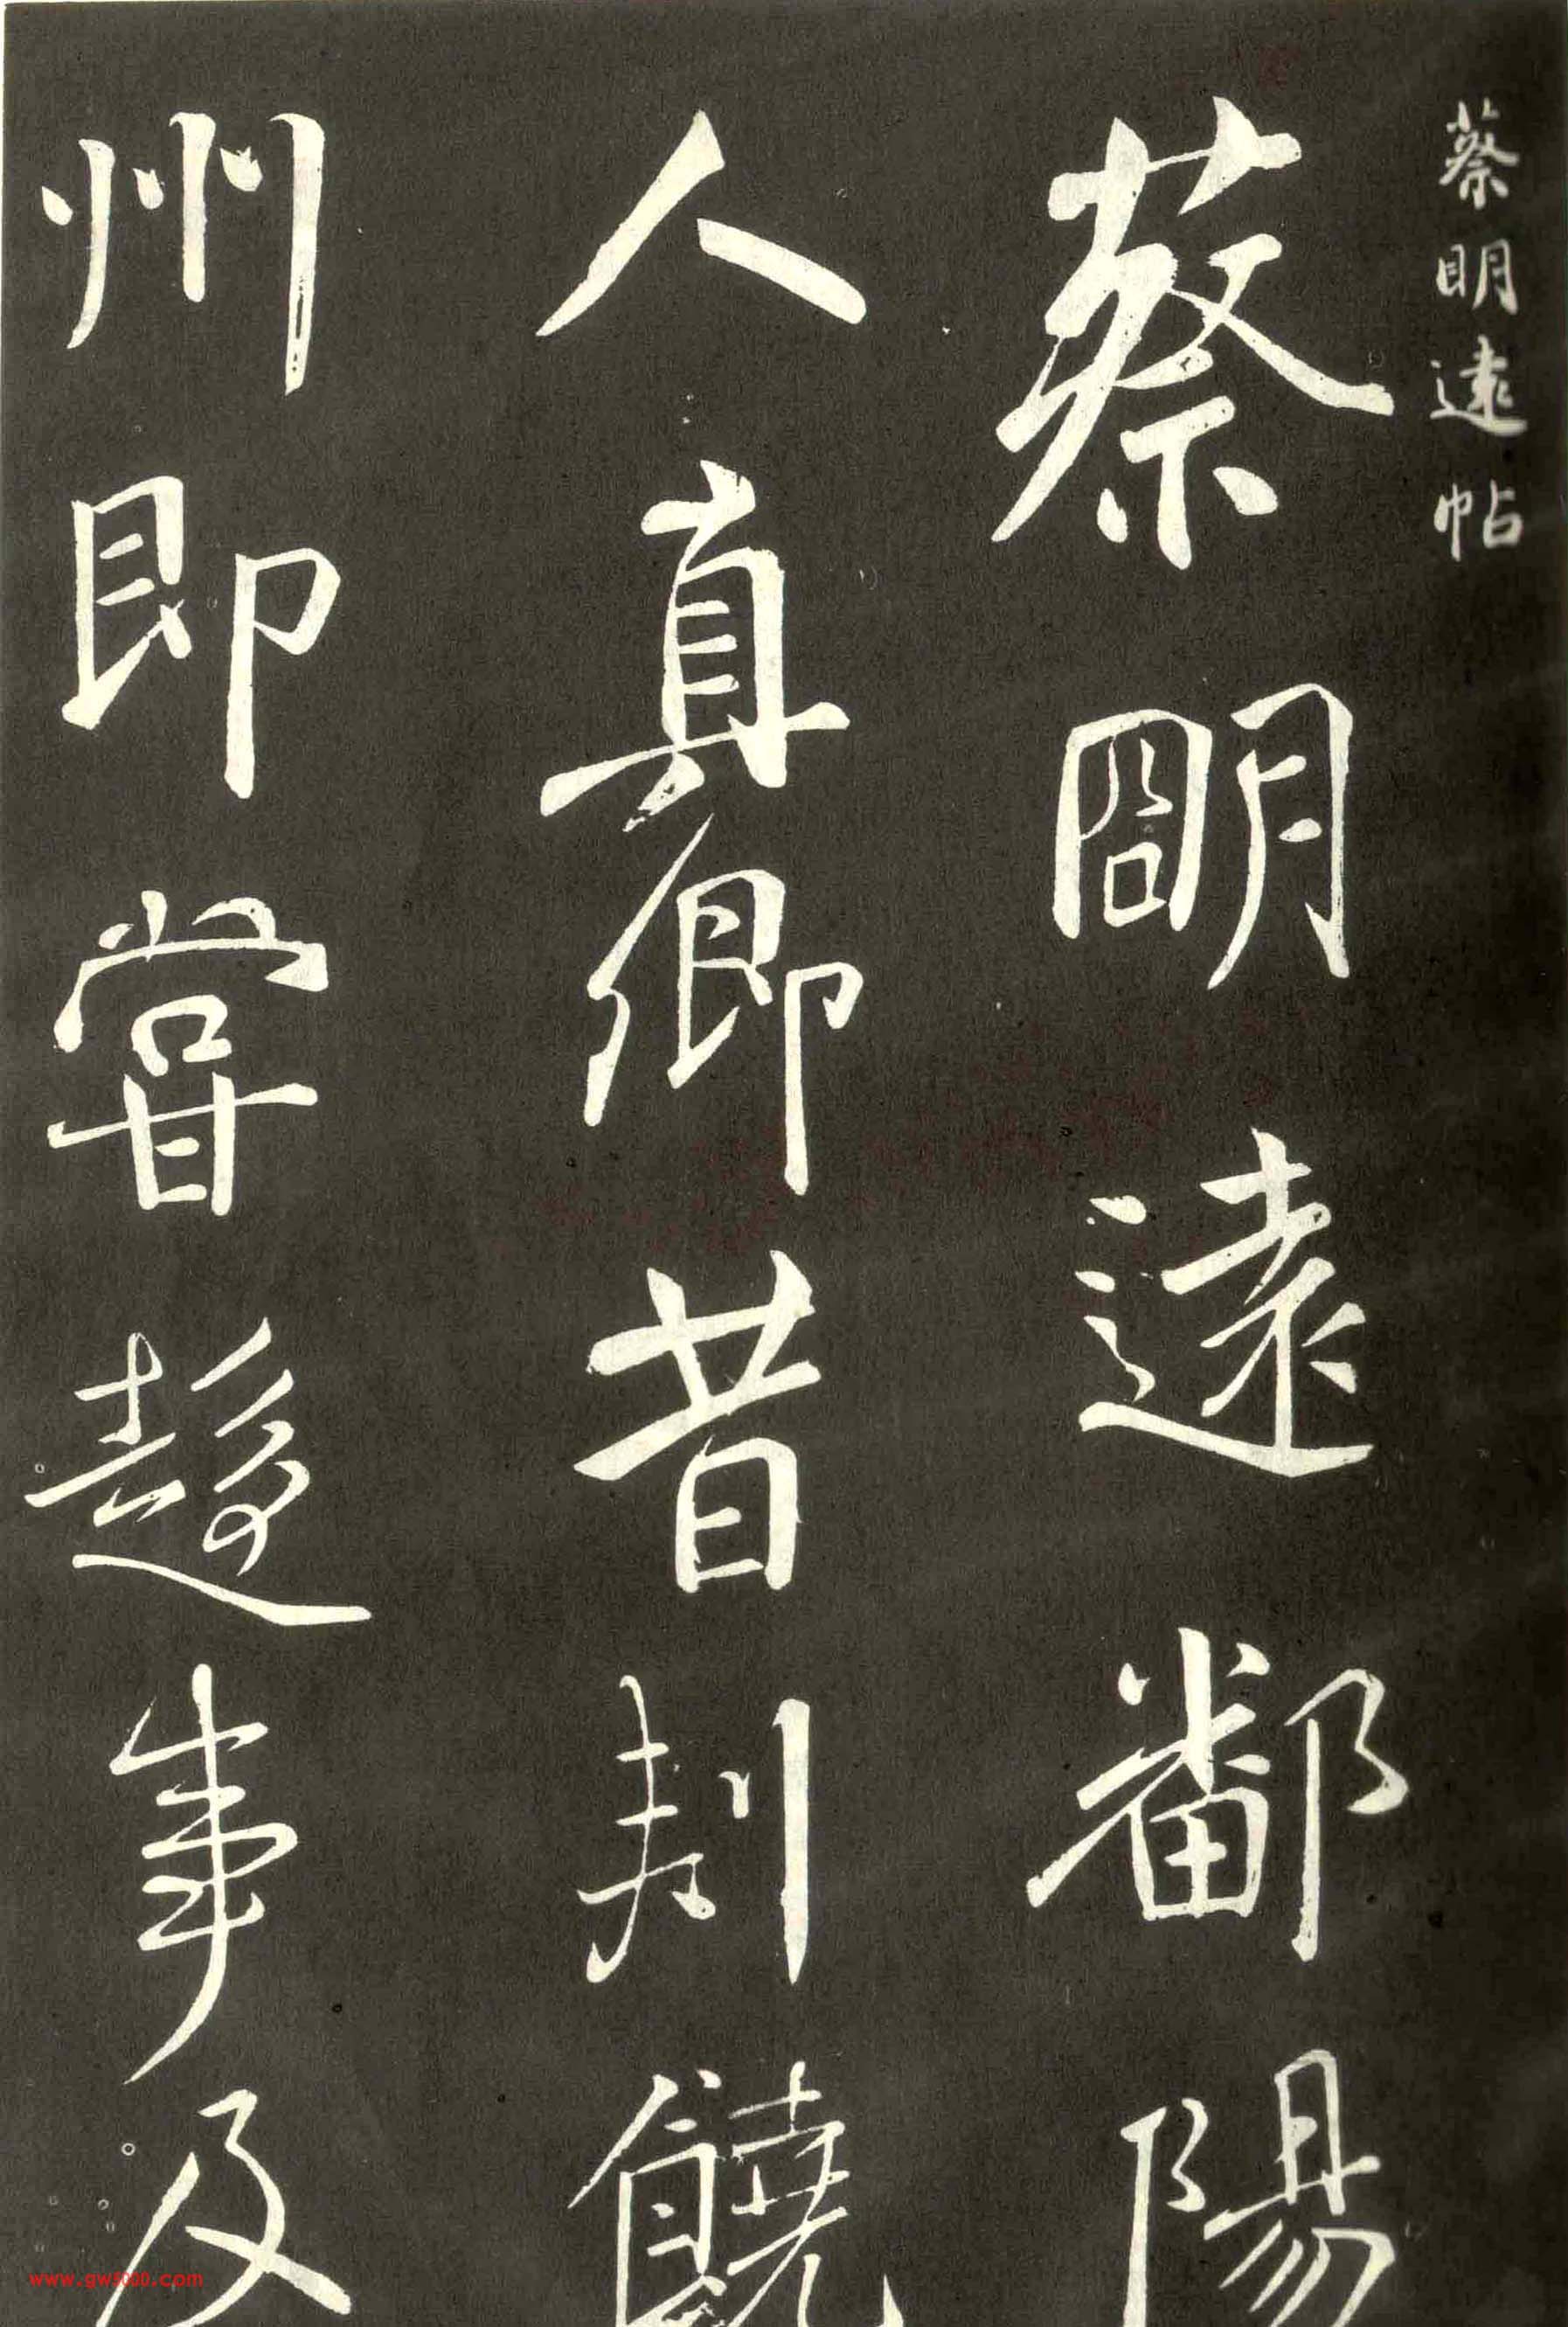 蔡明遠帖
蔡明遠鄱陽
人真卿昔刺饒
州即嘗趨事及
www.gw5000.com